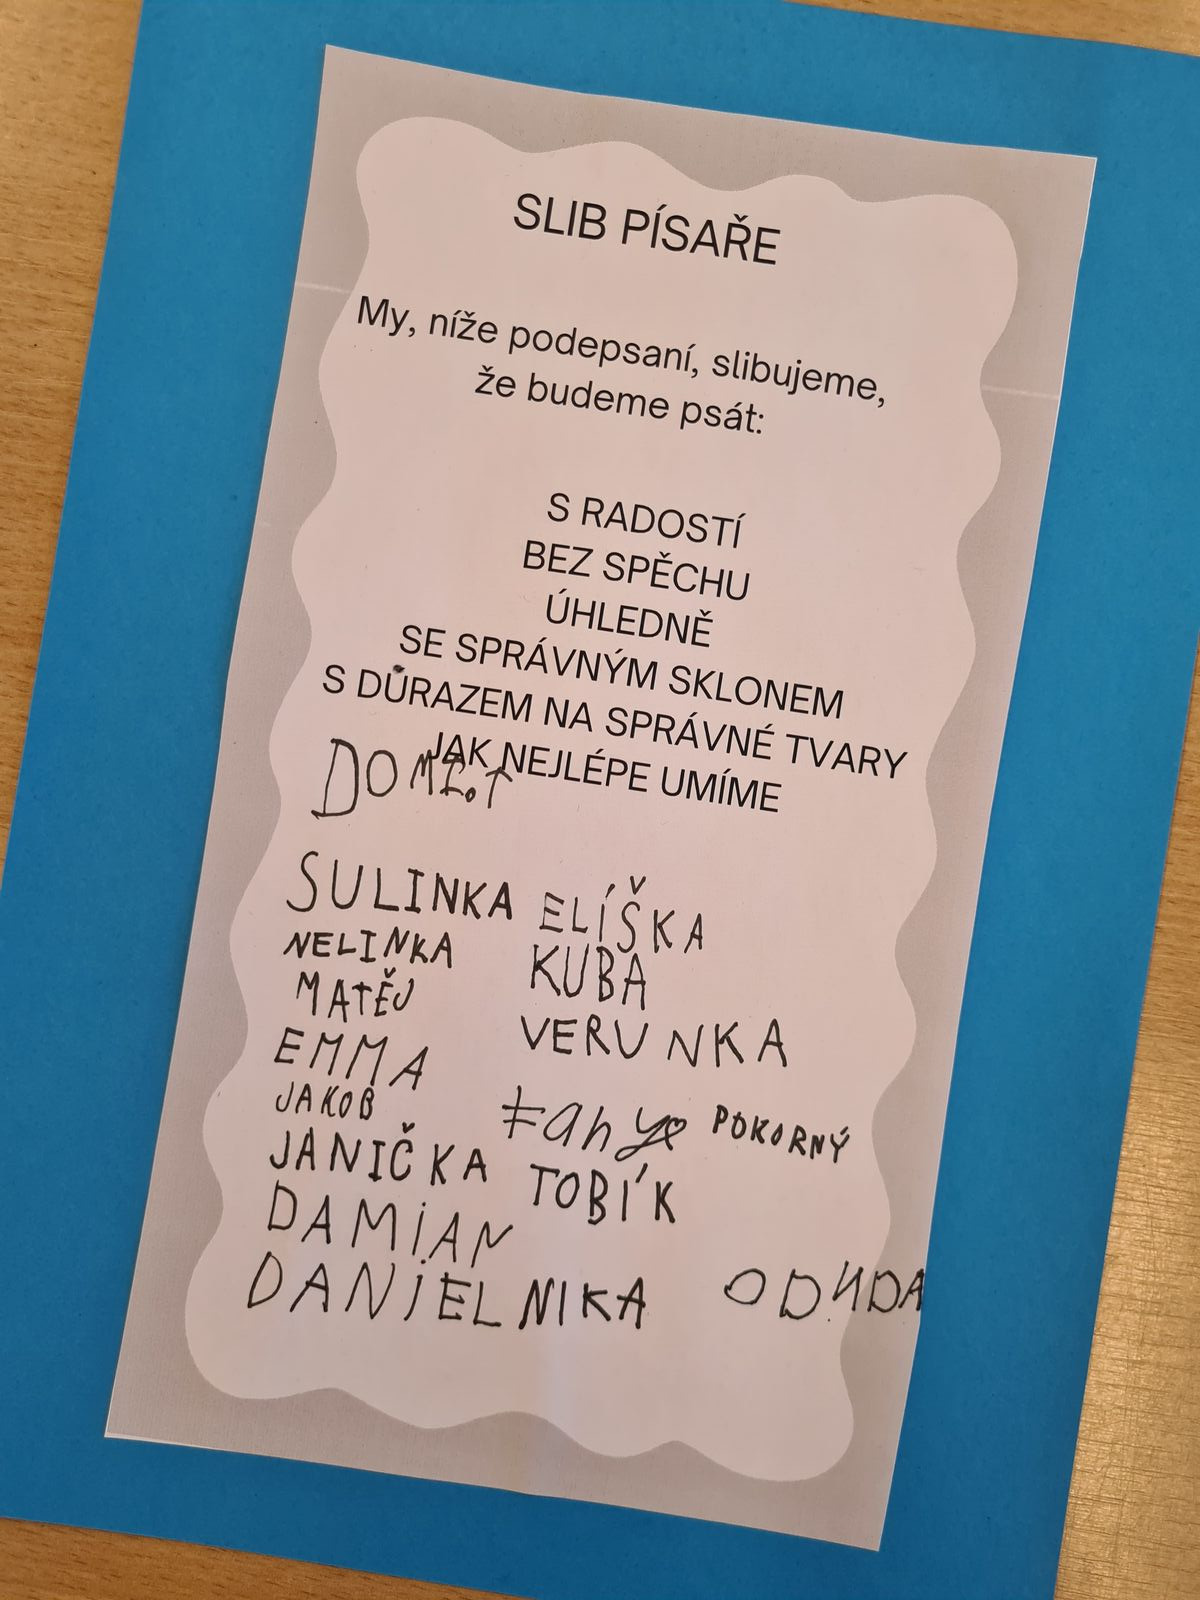 SLIB PÍSAŘE
My, níže podepsaní, slibujeme,
že budeme psát:
S RADOSTÍ
BEZ SPĚCHU
ÚHLEDNĚ
SE SPRÁVNÝM SKLONEM
S DŮRAZEM NA SPRÁVNÉ TVARY
JAK NEJLÉPE UMÍME
SULINKA ELÍŠKA
NELINKA KUBA
MATĚJ
VERUNKA
EMMA
JAKOB
POKORNÝ
JANIČKA TOBÍK
DAMiAN
DANiEL NIKA